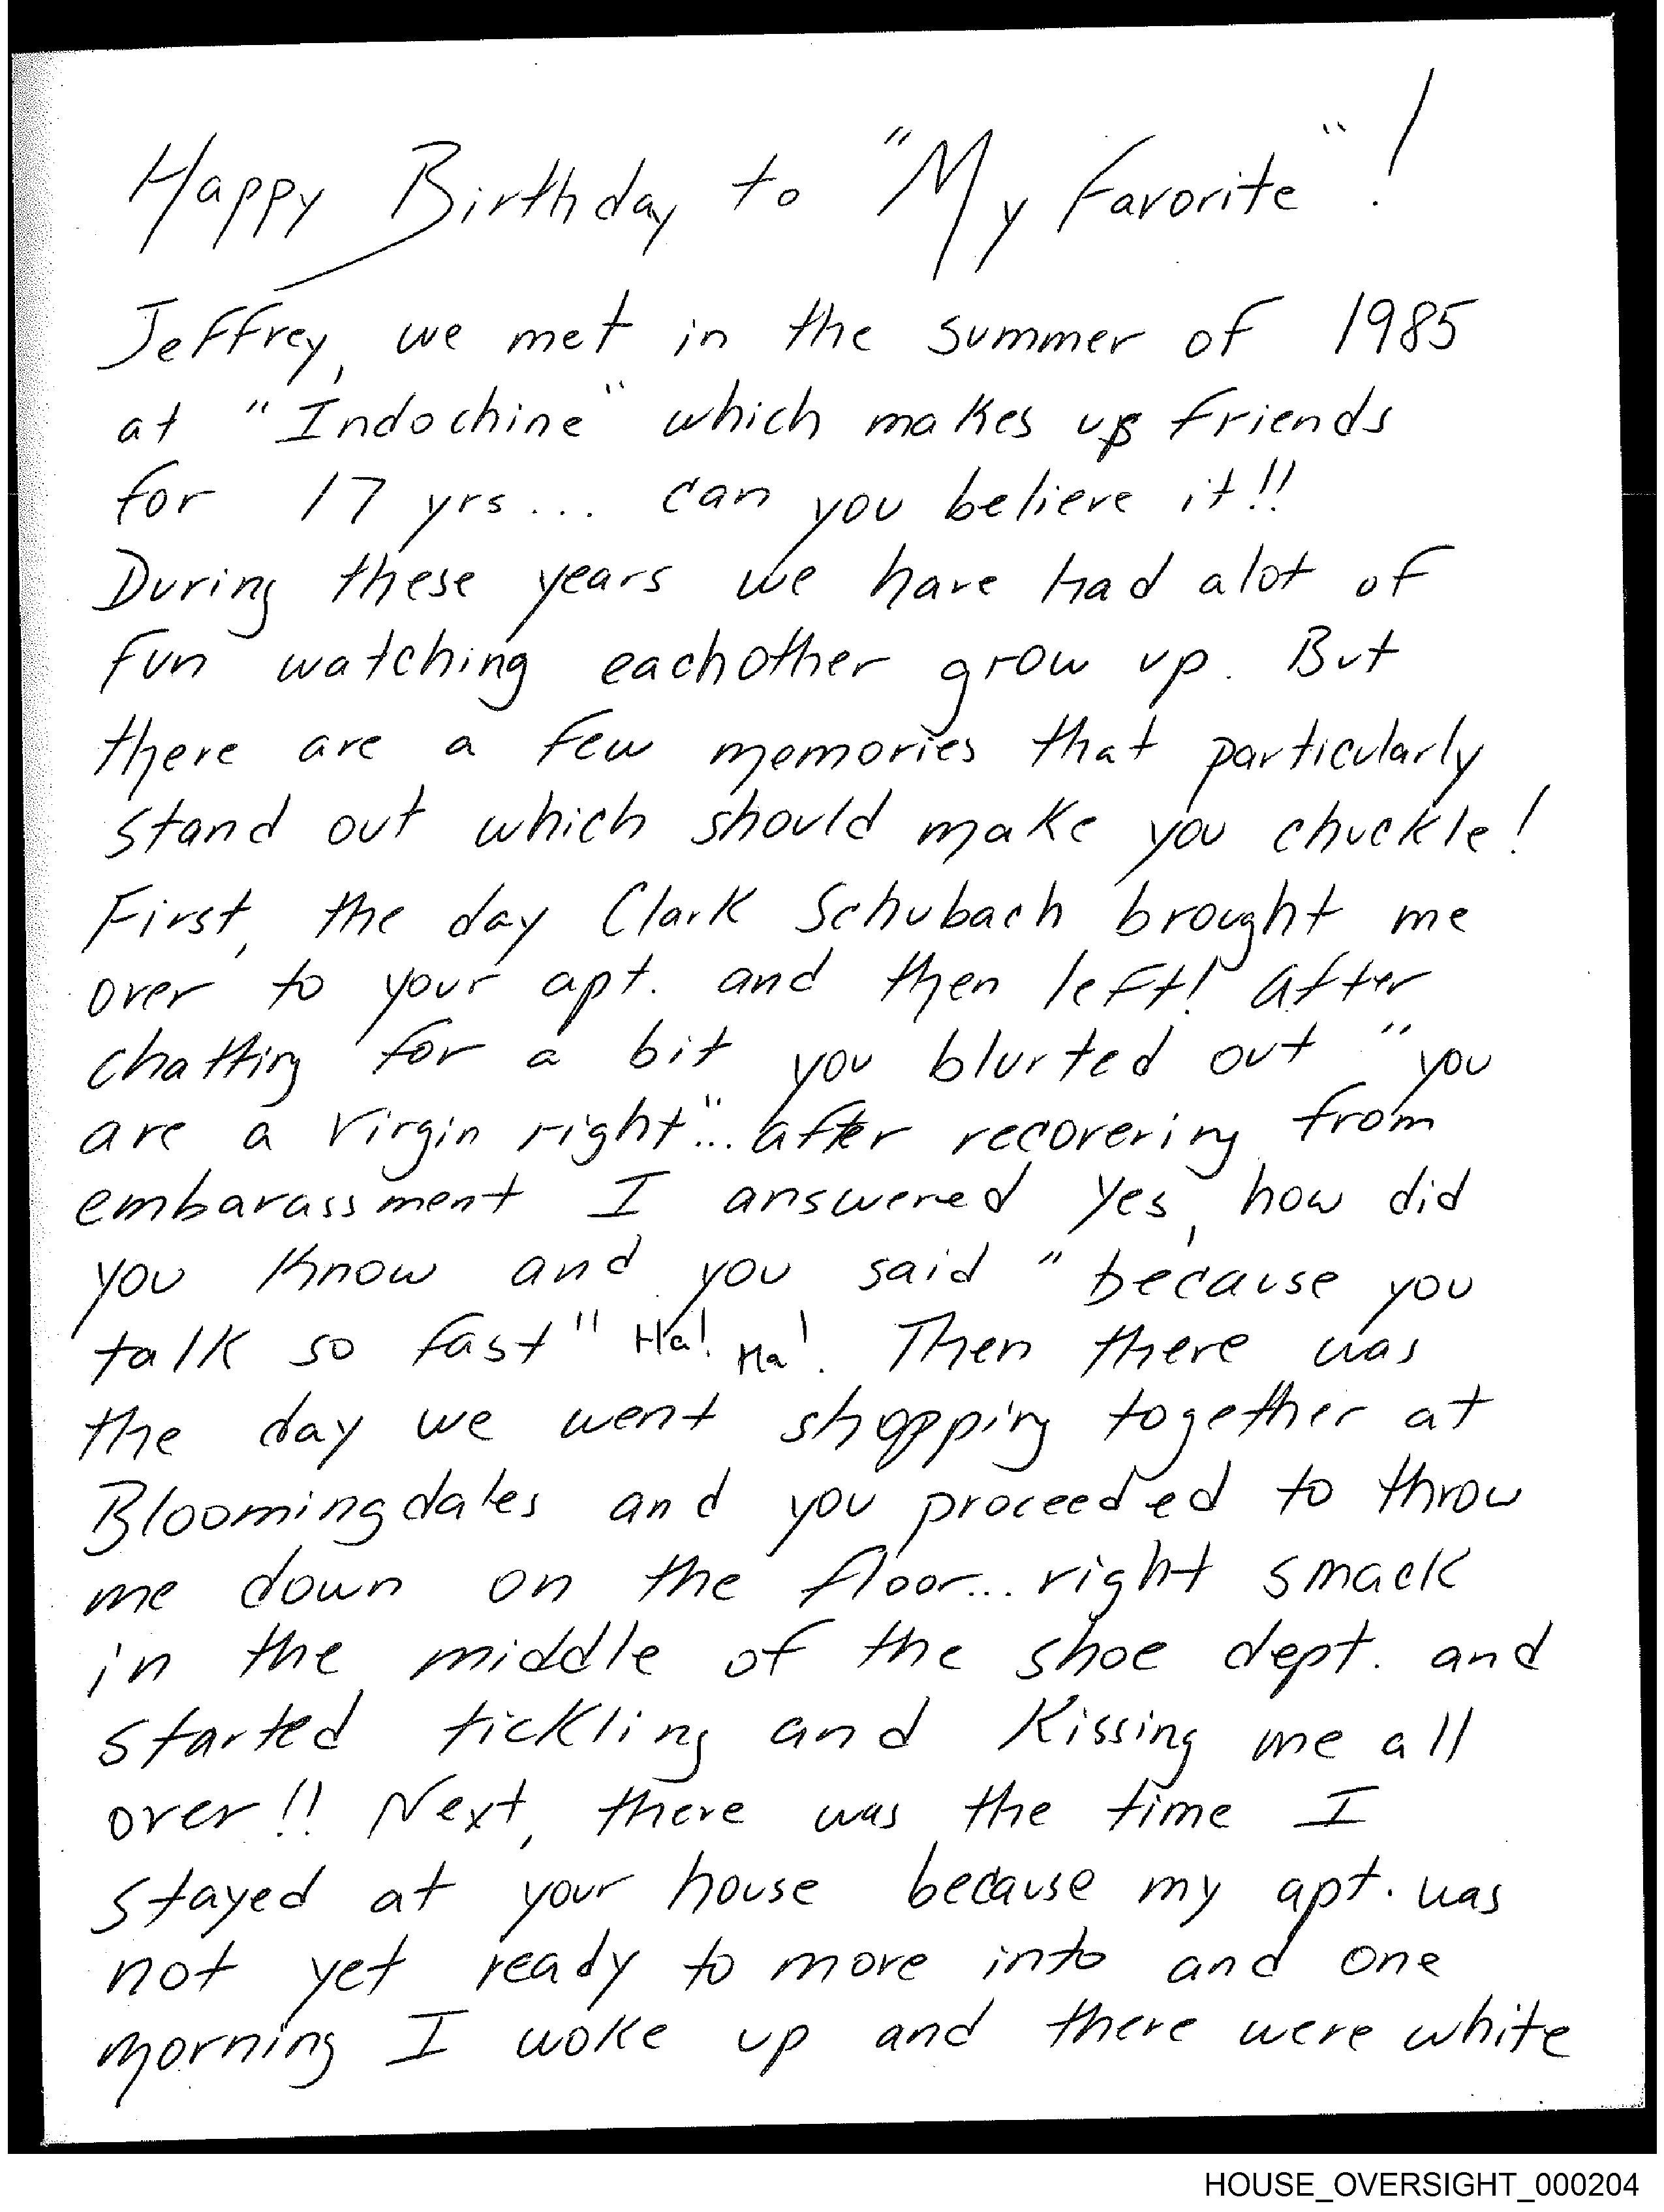 Happy Birthday to "My Favorite"!
Jeffrey, we met in the summer of 1985
at "Indochine" which makes us friends
for 17 yrs... can you believe it!!
During these years we have had alot of
fun watching eachother grow up. But
there are a few memories that particularly
stand out which should make you chuckle!
First, the day Clark Schubach brought me
over to your apt. and then left! After
chatting for a bit you blurted out "you
are a virgin right"... after recovering from
embarassment I answered yes, how did
you know and you said "because you
talk so fast" Ha! Ha! Then there was
the day we went shopping together at
Bloomingdales and you proceeded to throw
me down on the floor... right smack
in the middle of the shoe dept. and
started tickling and kissing me all
over!! Next, there was the time I
stayed at your house because my apt. was
not yet ready to move into and one
morning I woke up and there were white
HOUSE_OVERSIGHT_000204